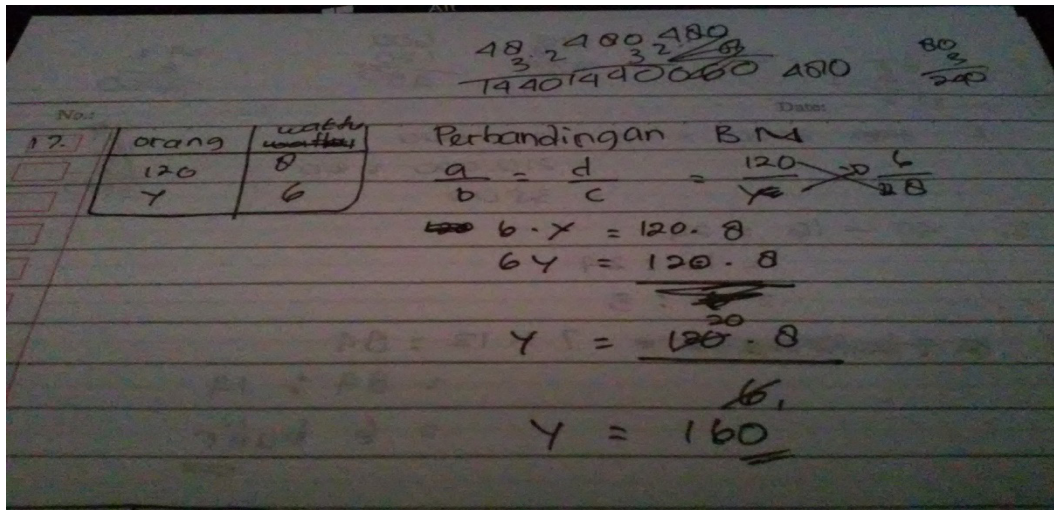 48 480 480
3 2 3 2
1440 1440 480
80
3
240
No.: Date:
17. orang waktu Perbandingan BN
120 8 a/b = d/c = 120/y 6/8
y 6
6 . y = 120 . 8
6y = 120 . 8
20
y = 120 . 8
6 1
y = 160